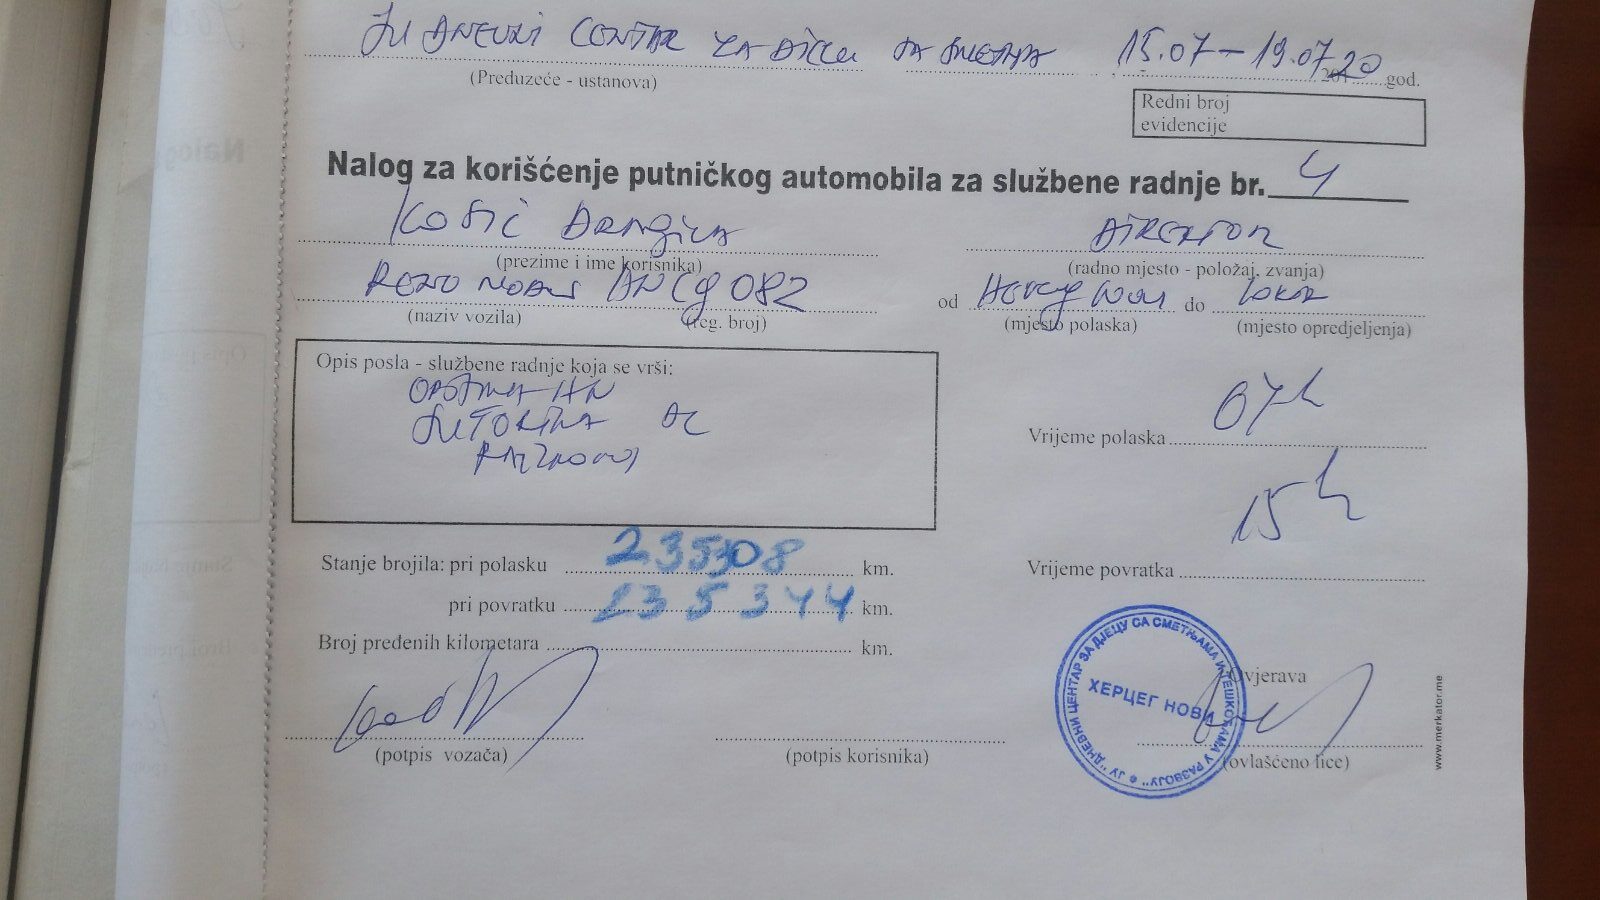 JU DNEVNI CENTAR ZA DJECU SA SMETNJA 15.07-19.07 20 god.
(Preduzeće - ustanova)
Redni broj
evidencije
Nalog za korišćenje putničkog automobila za službene radnje br. 4
Kosić Dragica DIREKTOR
(prezime i ime korisnika) (radno mjesto - položaj, zvanja)
RENO MODUS HNCG 082 od Herceg Novi do
(naziv vozila) (reg. broj) (mjesto polaska) (mjesto opredjeljenja)
Opis posla - službene radnje koja se vrši:
OPŠTINA HN
SUTORINA DC
Vrijeme polaska 07h
Stanje brojila: pri polasku 235308 km.
Vrijeme povratka 15h
pri povratku 235344 km.
Broj pređenih kilometara km.
ЈУ "ДНЕВНИ ЦЕНТАР ЗА ДЈЕЦУ СА СМЕТЊАМА И ТЕШКОЋАМА У РАЗВОЈУ"
ХЕРЦЕГ НОВИ
Ovjerava
(potpis vozača) (potpis korisnika) (ovlašćeno lice)
www.merkator.me